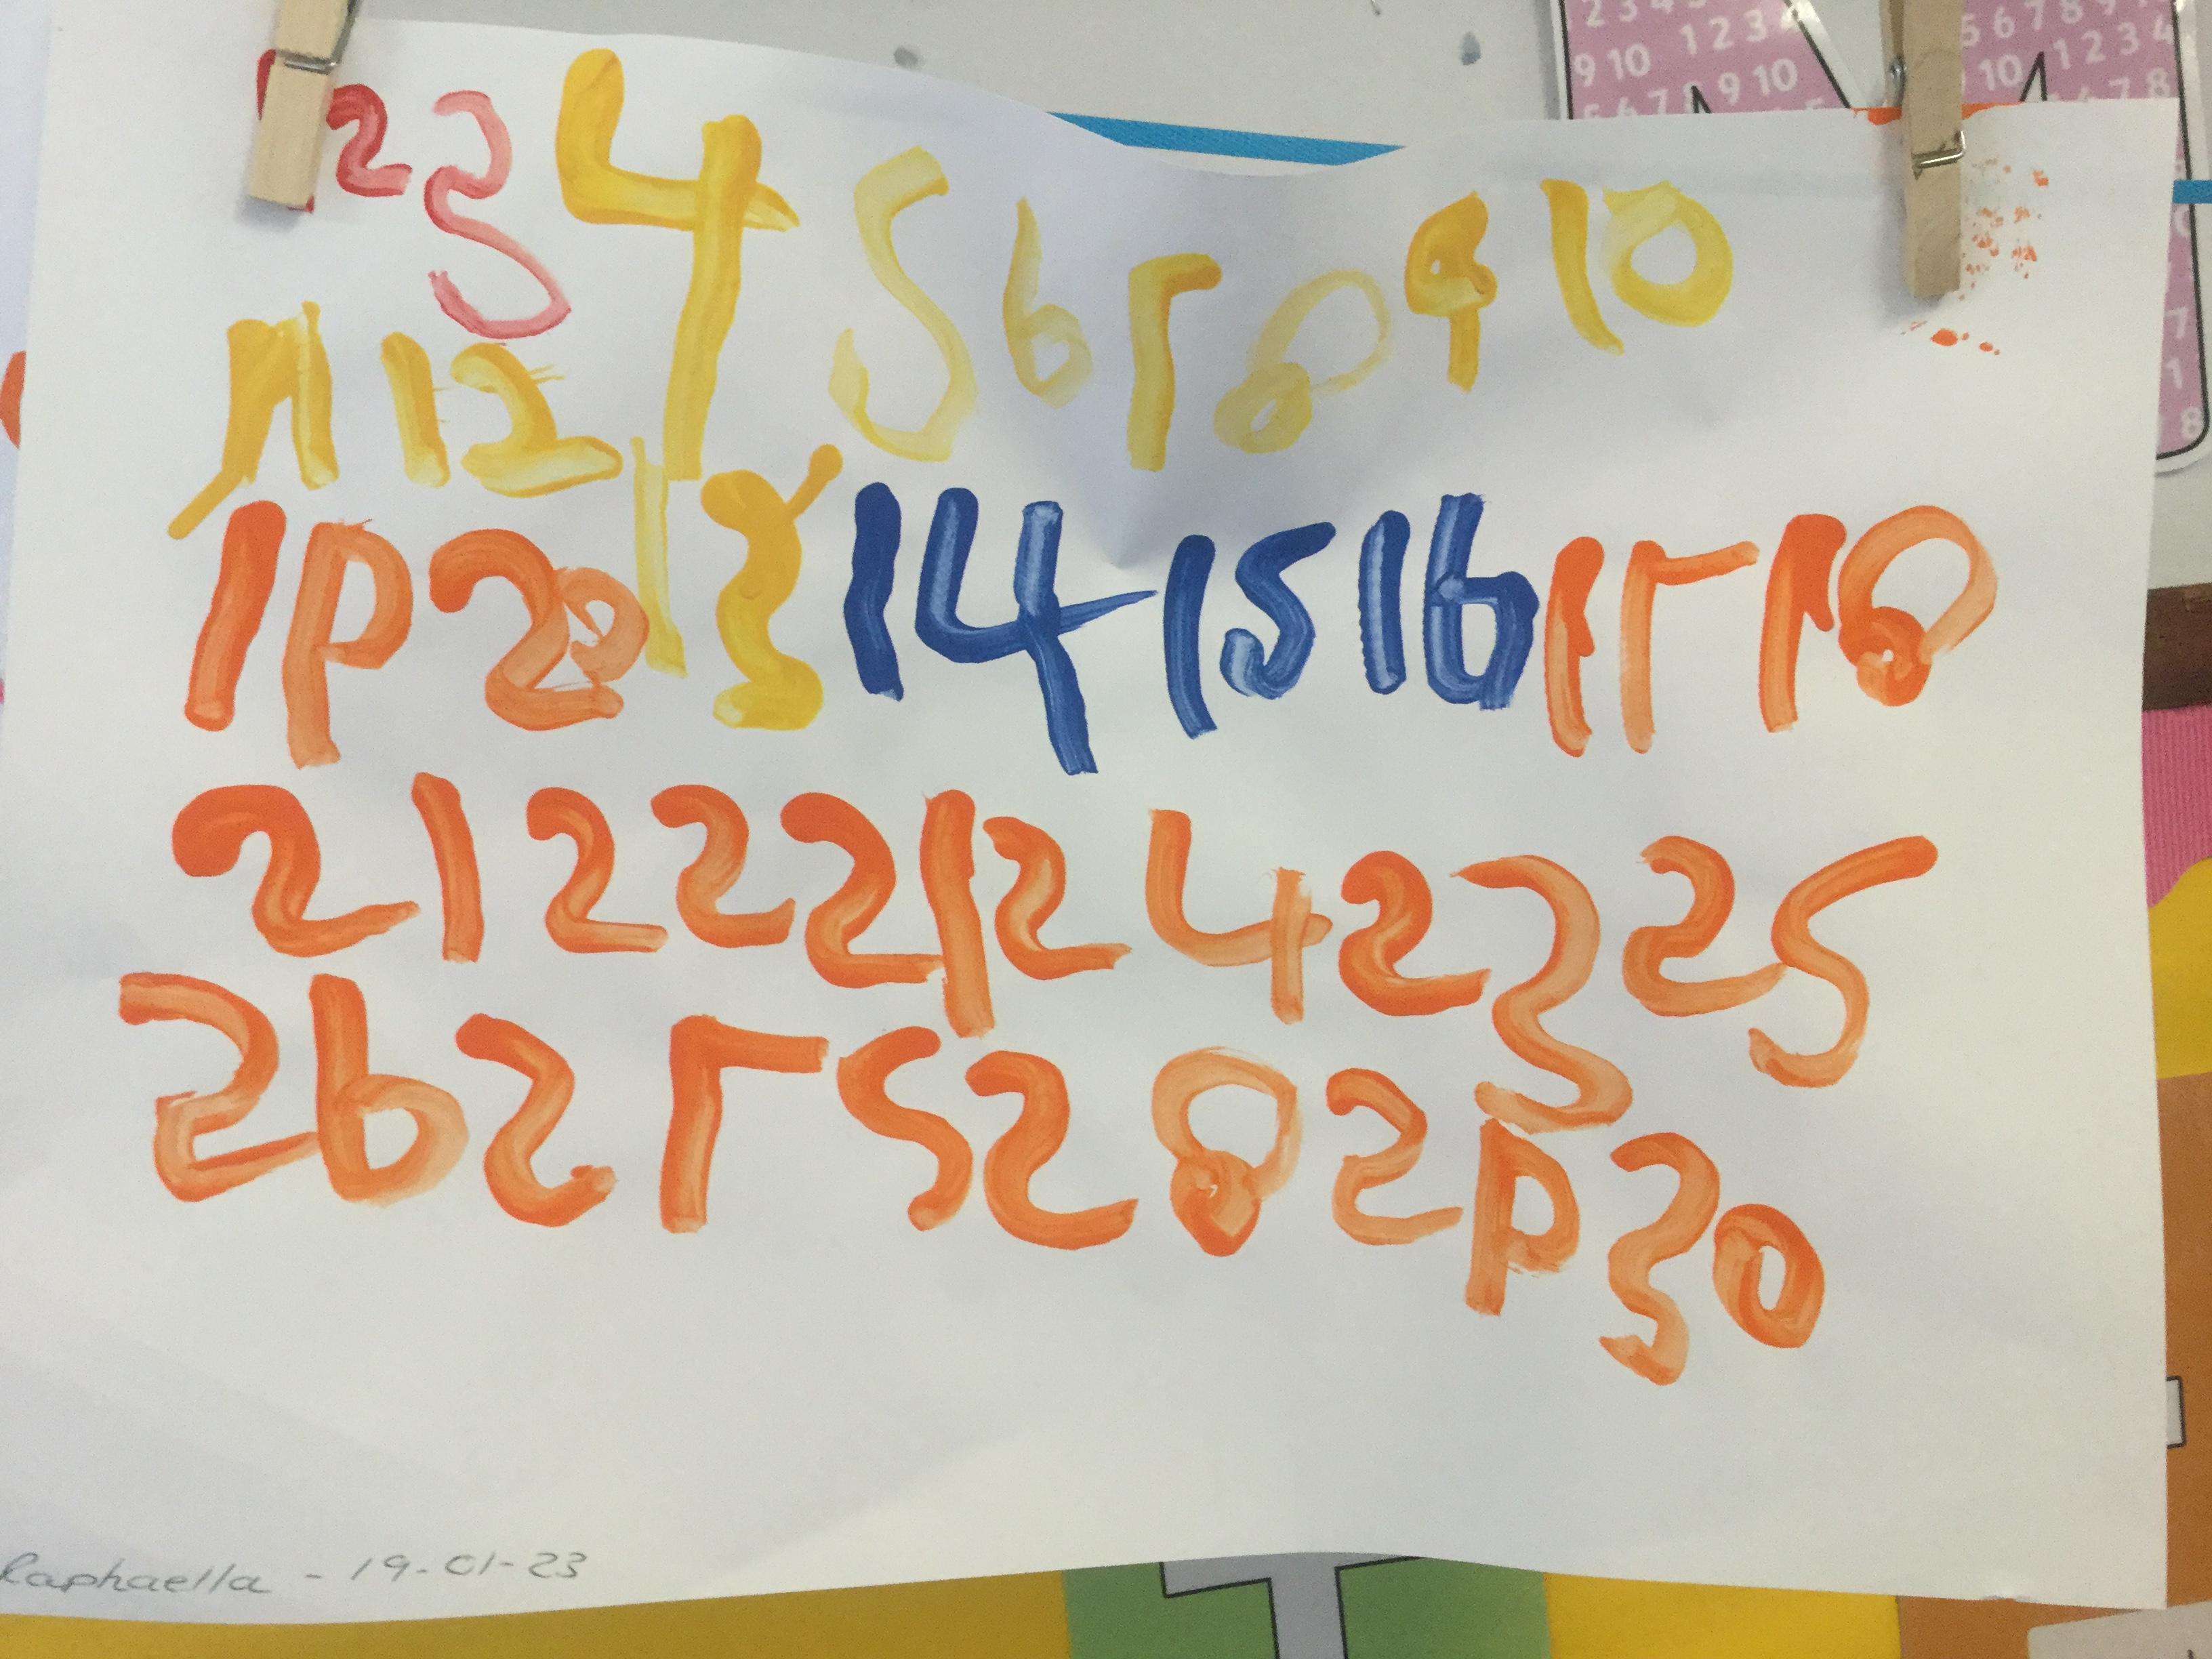 1 2 3 4 5 6 7 8 9 10
11 12
19 20 13 14 15 16 17 18
21 22 21 24 23 25
26 27 S 28 29 30
Raphaella - 19-01-23